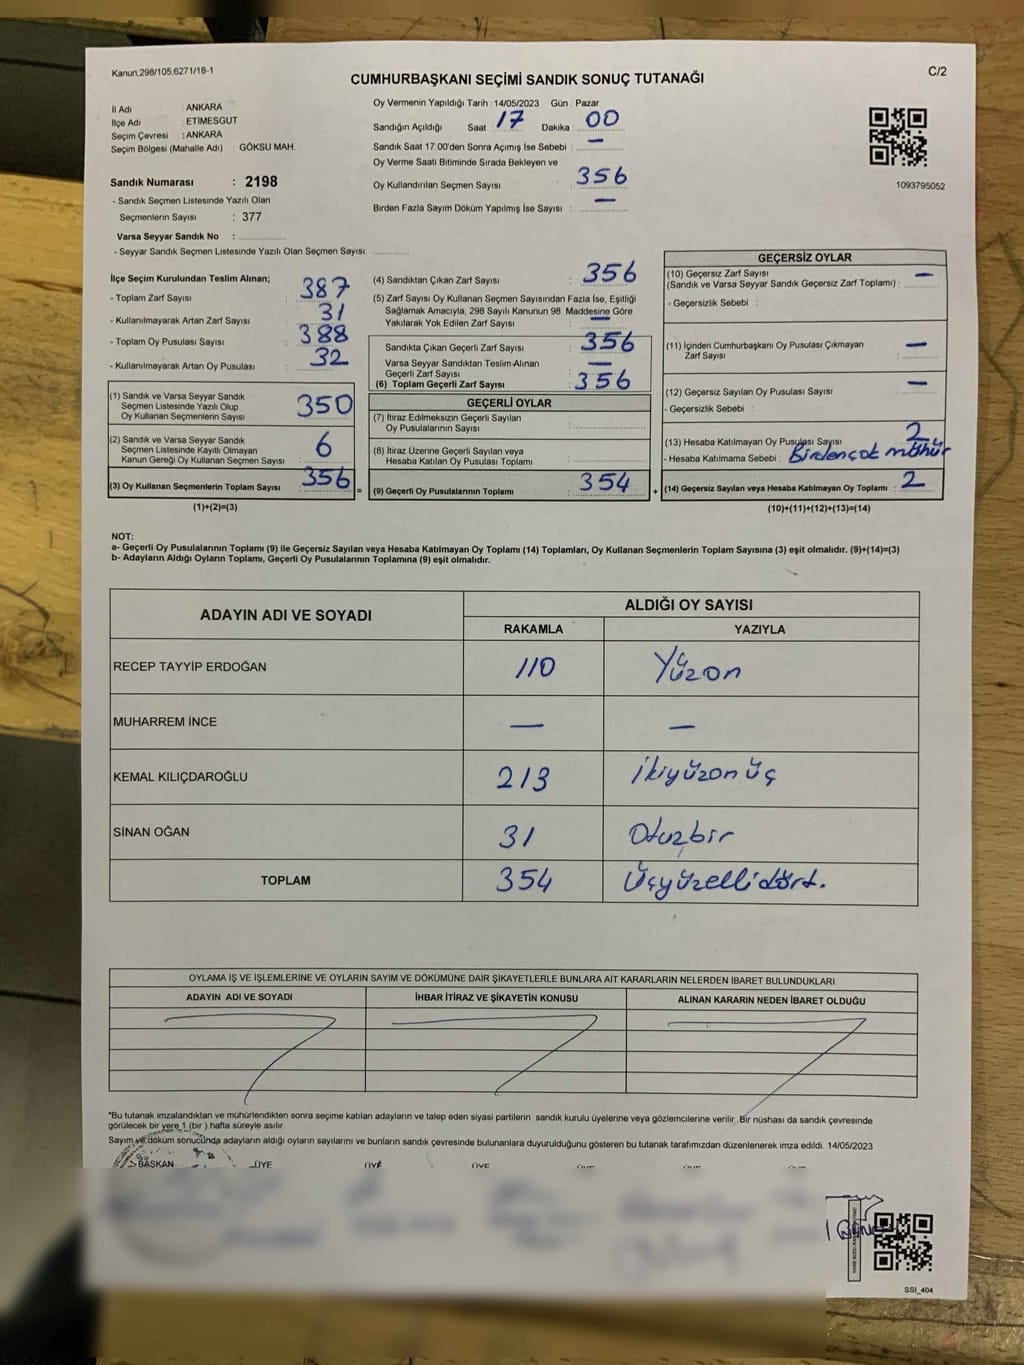 Kanun,298/105,6271/18-1
C/2
CUMHURBAŞKANI SEÇİMİ SANDIK SONUÇ TUTANAĞI
İl Adı : ANKARA
İlçe Adı : ETİMESGUT
Seçim Çevresi : ANKARA
Seçim Bölgesi (Mahalle Adı) : GÖKSU MAH.
Sandık Numarası : 2198
- Sandık Seçmen Listesinde Yazılı Olan
Seçmenlerin Sayısı : 377
Varsa Seyyar Sandık No :
- Seyyar Sandık Seçmen Listesinde Yazılı Olan Seçmen Sayısı:
Oy Vermenin Yapıldığı Tarih : 14/05/2023 Gün : Pazar
Sandığın Açıldığı Saat : 17 Dakika : 00
Sandık Saat 17:00'den Sonra Açımış İse Sebebi : —
Oy Verme Saati Bitiminde Sırada Bekleyen ve
Oy Kullandırılan Seçmen Sayısı : 356
Birden Fazla Sayım Döküm Yapılmış İse Sayısı : —
1093795052
İlçe Seçim Kurulundan Teslim Alınan;
- Toplam Zarf Sayısı : 387
- Kullanılmayarak Artan Zarf Sayısı : 31
- Toplam Oy Pusulası Sayısı : 388
- Kullanılmayarak Artan Oy Pusulası : 32
(1) Sandık ve Varsa Seyyar Sandık
Seçmen Listesinde Yazılı Olup
Oy Kullanan Seçmenlerin Sayısı 350
(2) Sandık ve Varsa Seyyar Sandık
Seçmen Listesinde Kayıtlı Olmayan
Kanun Gereği Oy Kullanan Seçmen Sayısı 6
(3) Oy Kullanan Seçmenlerin Toplam Sayısı 356 =
(1)+(2)=(3)
(4) Sandıktan Çıkan Zarf Sayısı : 356
(5) Zarf Sayısı Oy Kullanan Seçmen Sayısından Fazla İse, Eşitliği
Sağlamak Amacıyla, 298 Sayılı Kanunun 98. Maddesine Göre
Yakılarak Yok Edilen Zarf Sayısı : —
Sandıkta Çıkan Geçerli Zarf Sayısı : 356
Varsa Seyyar Sandıktan Teslim Alınan
Geçerli Zarf Sayısı : —
(6) Toplam Geçerli Zarf Sayısı : 356
GEÇERLİ OYLAR
(7) İtiraz Edilmeksizin Geçerli Sayılan
Oy Pusulalarının Sayısı :
(8) İtiraz Üzerine Geçerli Sayılan veya
Hesaba Katılan Oy Pusulası Toplamı :
(9) Geçerli Oy Pusulalarının Toplamı : 354 +
GEÇERSİZ OYLAR
(10) Geçersiz Zarf Sayısı —
(Sandık ve Varsa Seyyar Sandık Geçersiz Zarf Toplamı) :
- Geçersizlik Sebebi :
(11) İçinden Cumhurbaşkanı Oy Pusulası Çıkmayan —
Zarf Sayısı :
(12) Geçersiz Sayılan Oy Pusulası Sayısı : —
- Geçersizlik Sebebi :
(13) Hesaba Katılmayan Oy Pusulası Sayısı : 2
- Hesaba Katılmama Sebebi : Birdençok mühür
(14) Geçersiz Sayılan veya Hesaba Katılmayan Oy Toplamı : 2
(10)+(11)+(12)+(13)=(14)
NOT:
a- Geçerli Oy Pusulalarının Toplamı (9) ile Geçersiz Sayılan veya Hesaba Katılmayan Oy Toplamı (14) Toplamları, Oy Kullanan Seçmenlerin Toplam Sayısına (3) eşit olmalıdır. (9)+(14)=(3)
b- Adayların Aldığı Oyların Toplamı, Geçerli Oy Pusulalarının Toplamına (9) eşit olmalıdır.
ADAYIN ADI VE SOYADI ALDIĞI OY SAYISI
RAKAMLA YAZIYLA
RECEP TAYYİP ERDOĞAN 110 Yüzon
MUHARREM İNCE — —
KEMAL KILIÇDAROĞLU 213 İkiyüzonüç
SİNAN OĞAN 31 Otuzbir
TOPLAM 354 Üçyüzellidört.
OYLAMA İŞ VE İŞLEMLERİNE VE OYLARIN SAYIM VE DÖKÜMÜNE DAİR ŞİKAYETLERLE BUNLARA AİT KARARLARIN NELERDEN İBARET BULUNDUKLARI
ADAYIN ADI VE SOYADI İHBAR İTİRAZ VE ŞİKAYETİN KONUSU ALINAN KARARIN NEDEN İBARET OLDUĞU
*Bu tutanak imzalandıktan ve mühürlendikten sonra seçime katılan adayların ve talep eden siyasi partilerin sandık kurulu üyelerine veya gözlemcilerine verilir. Bir nüshası da sandık çevresinde
görülecek bir yere 1 (bir ) hafta süreyle asılır.
Sayım ve döküm sonucunda adayların aldığı oyların sayılarını ve bunların sandık çevresinde bulunanlara duyurulduğunu gösteren bu tutanak tarafımızdan düzenlenerek imza edildi. 14/05/2023
BAŞKAN ÜYE ÜYE ÜYE
SSI_404